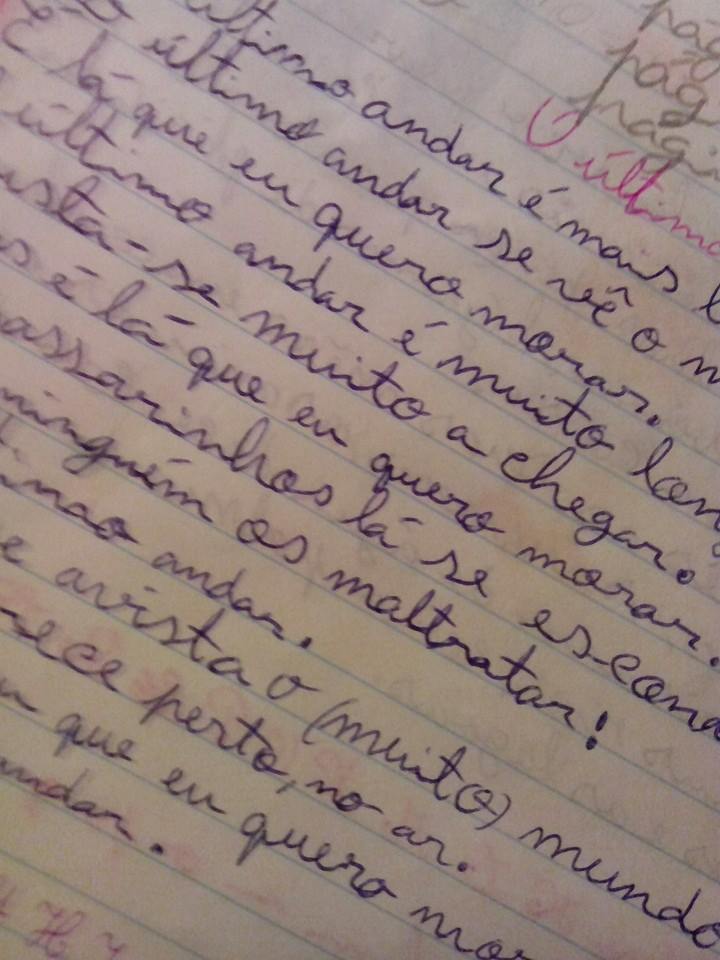 pág
pág
pági
O último
último andar é mais l
último andar se vê o m
É lá que eu quero morar.
último andar é muito lon
usta-se muito a chegar.
as é lá que eu quero morar.
assarinhos lá se escond
ninguém os maltratar!
imao andar.
e avista o (muito) mundo
rece perto, no ar.
que eu quero mor
andar.